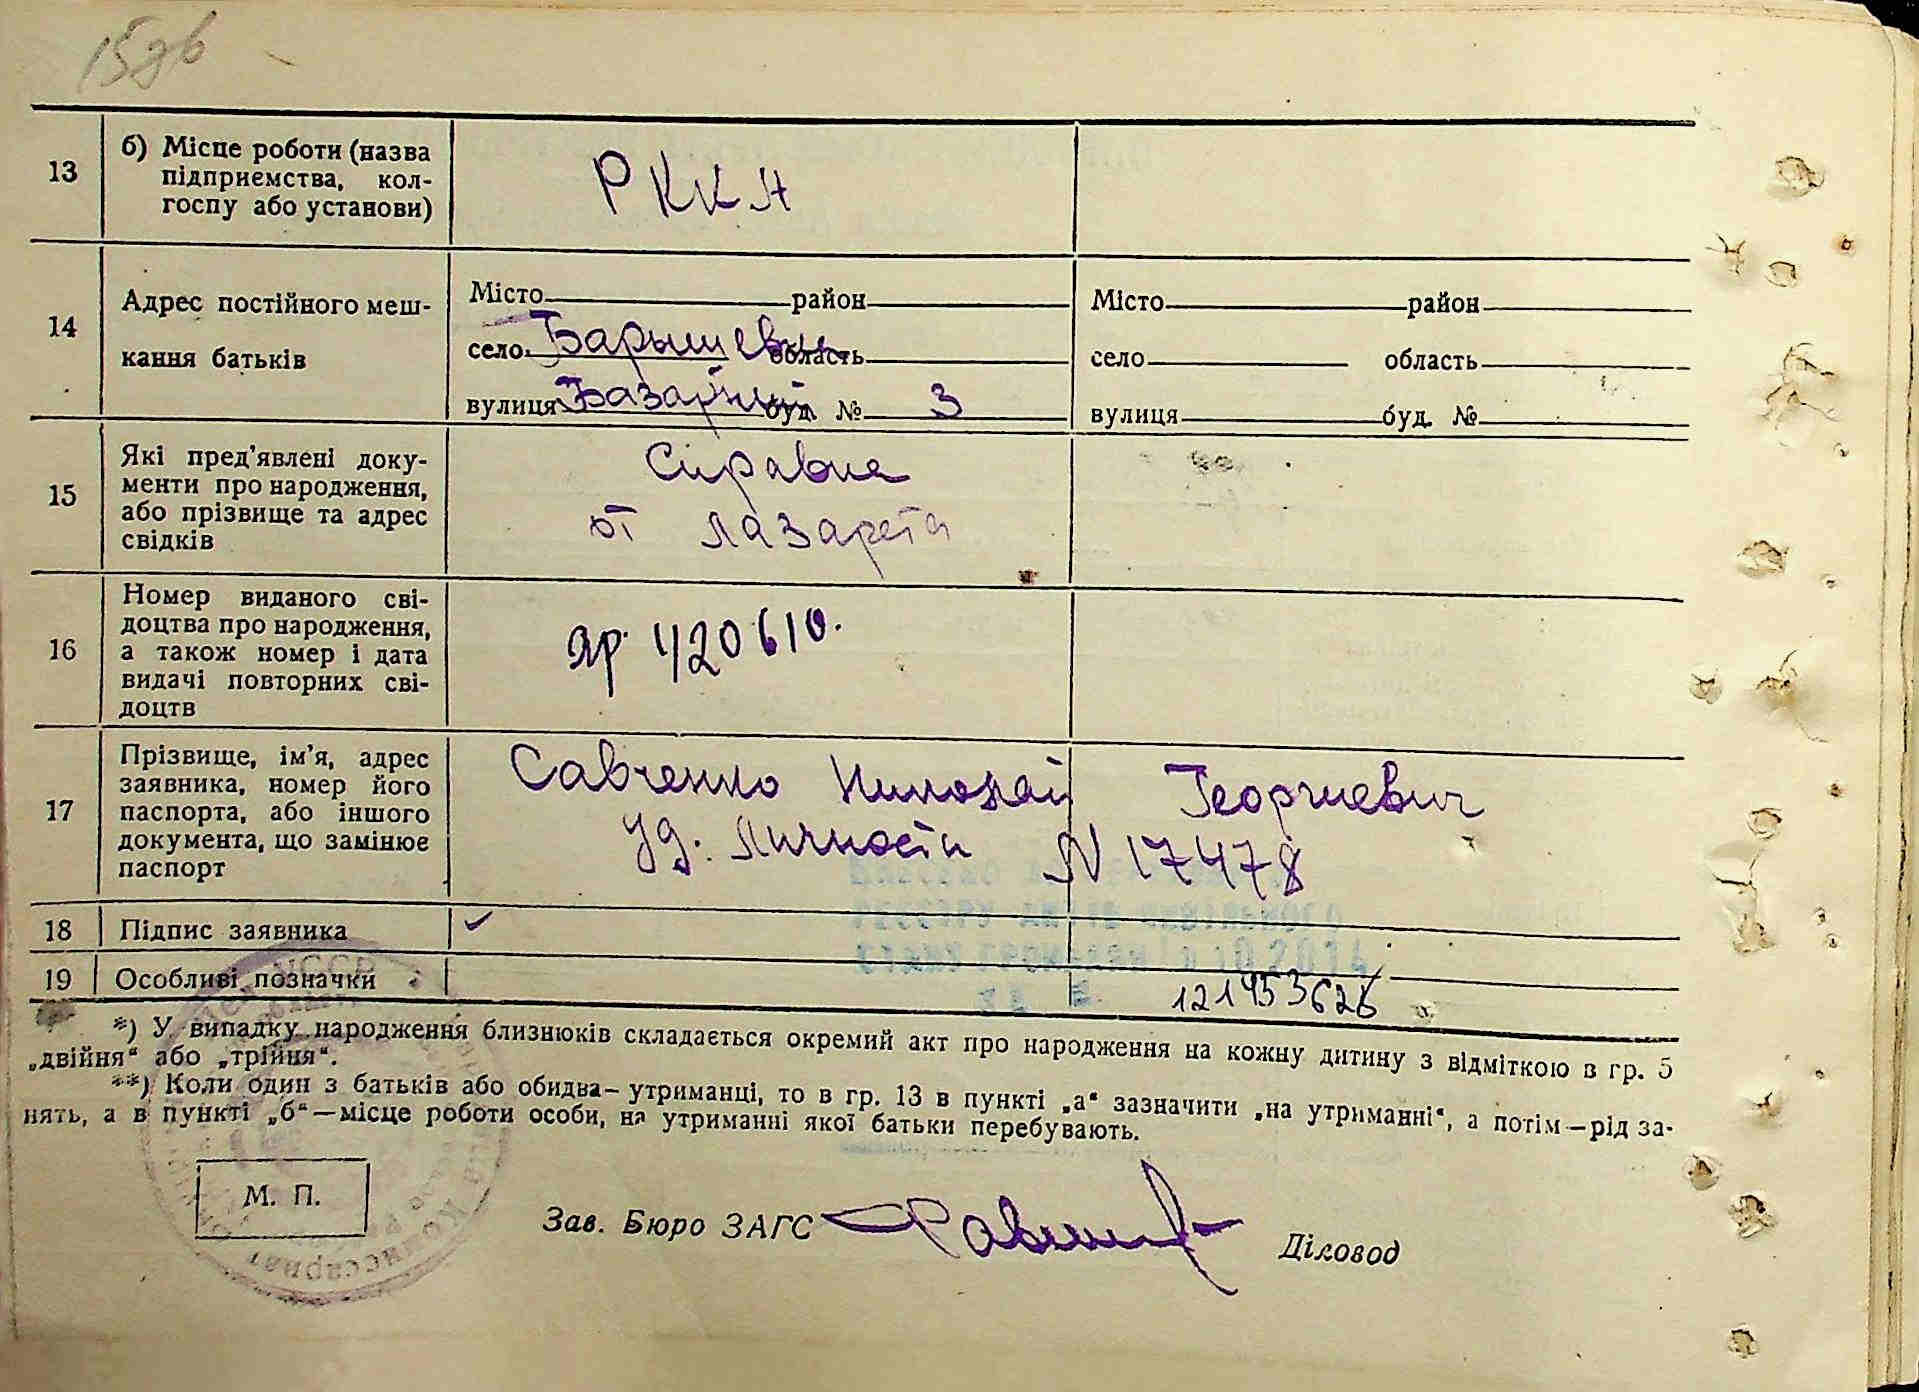 13 б) Місце роботи (назва
підприємства, кол-
госпу або установи)
РККА
14 Адрес постійного меш-
кання батьків
Місто район
село Барышевка область
вулиця Базарный буд. № 3
Місто район
село область
вулиця буд. №
15 Які пред'явлені доку-
менти про народження,
або прізвище та адрес
свідків
Справка
от лазарета
16 Номер виданого сві-
доцтва про народження,
а також номер і дата
видачі повторних сві-
доцтв
420610.
17 Прізвище, ім'я, адрес
заявника, номер його
паспорта, або іншого
документа, що замінює
паспорт
Савченко Николай Георгиевич
уд. личности N 17478
18 Підпис заявника
19 Особливі позначки
*) У випадку народження близнюків складається окремий акт про народження на кожну дитину з відміткою в гр. 5
„двійня“ або „трійня“.
**) Коли один з батьків або обидва—утриманці, то в гр. 13 в пункті „а“ зазначити „на утриманні“, а потім—рід за-
нять, а в пункті „б“—місце роботи особи, на утриманні якої батьки перебувають.
М. П.
Зав. Бюро ЗАГС
Діловод